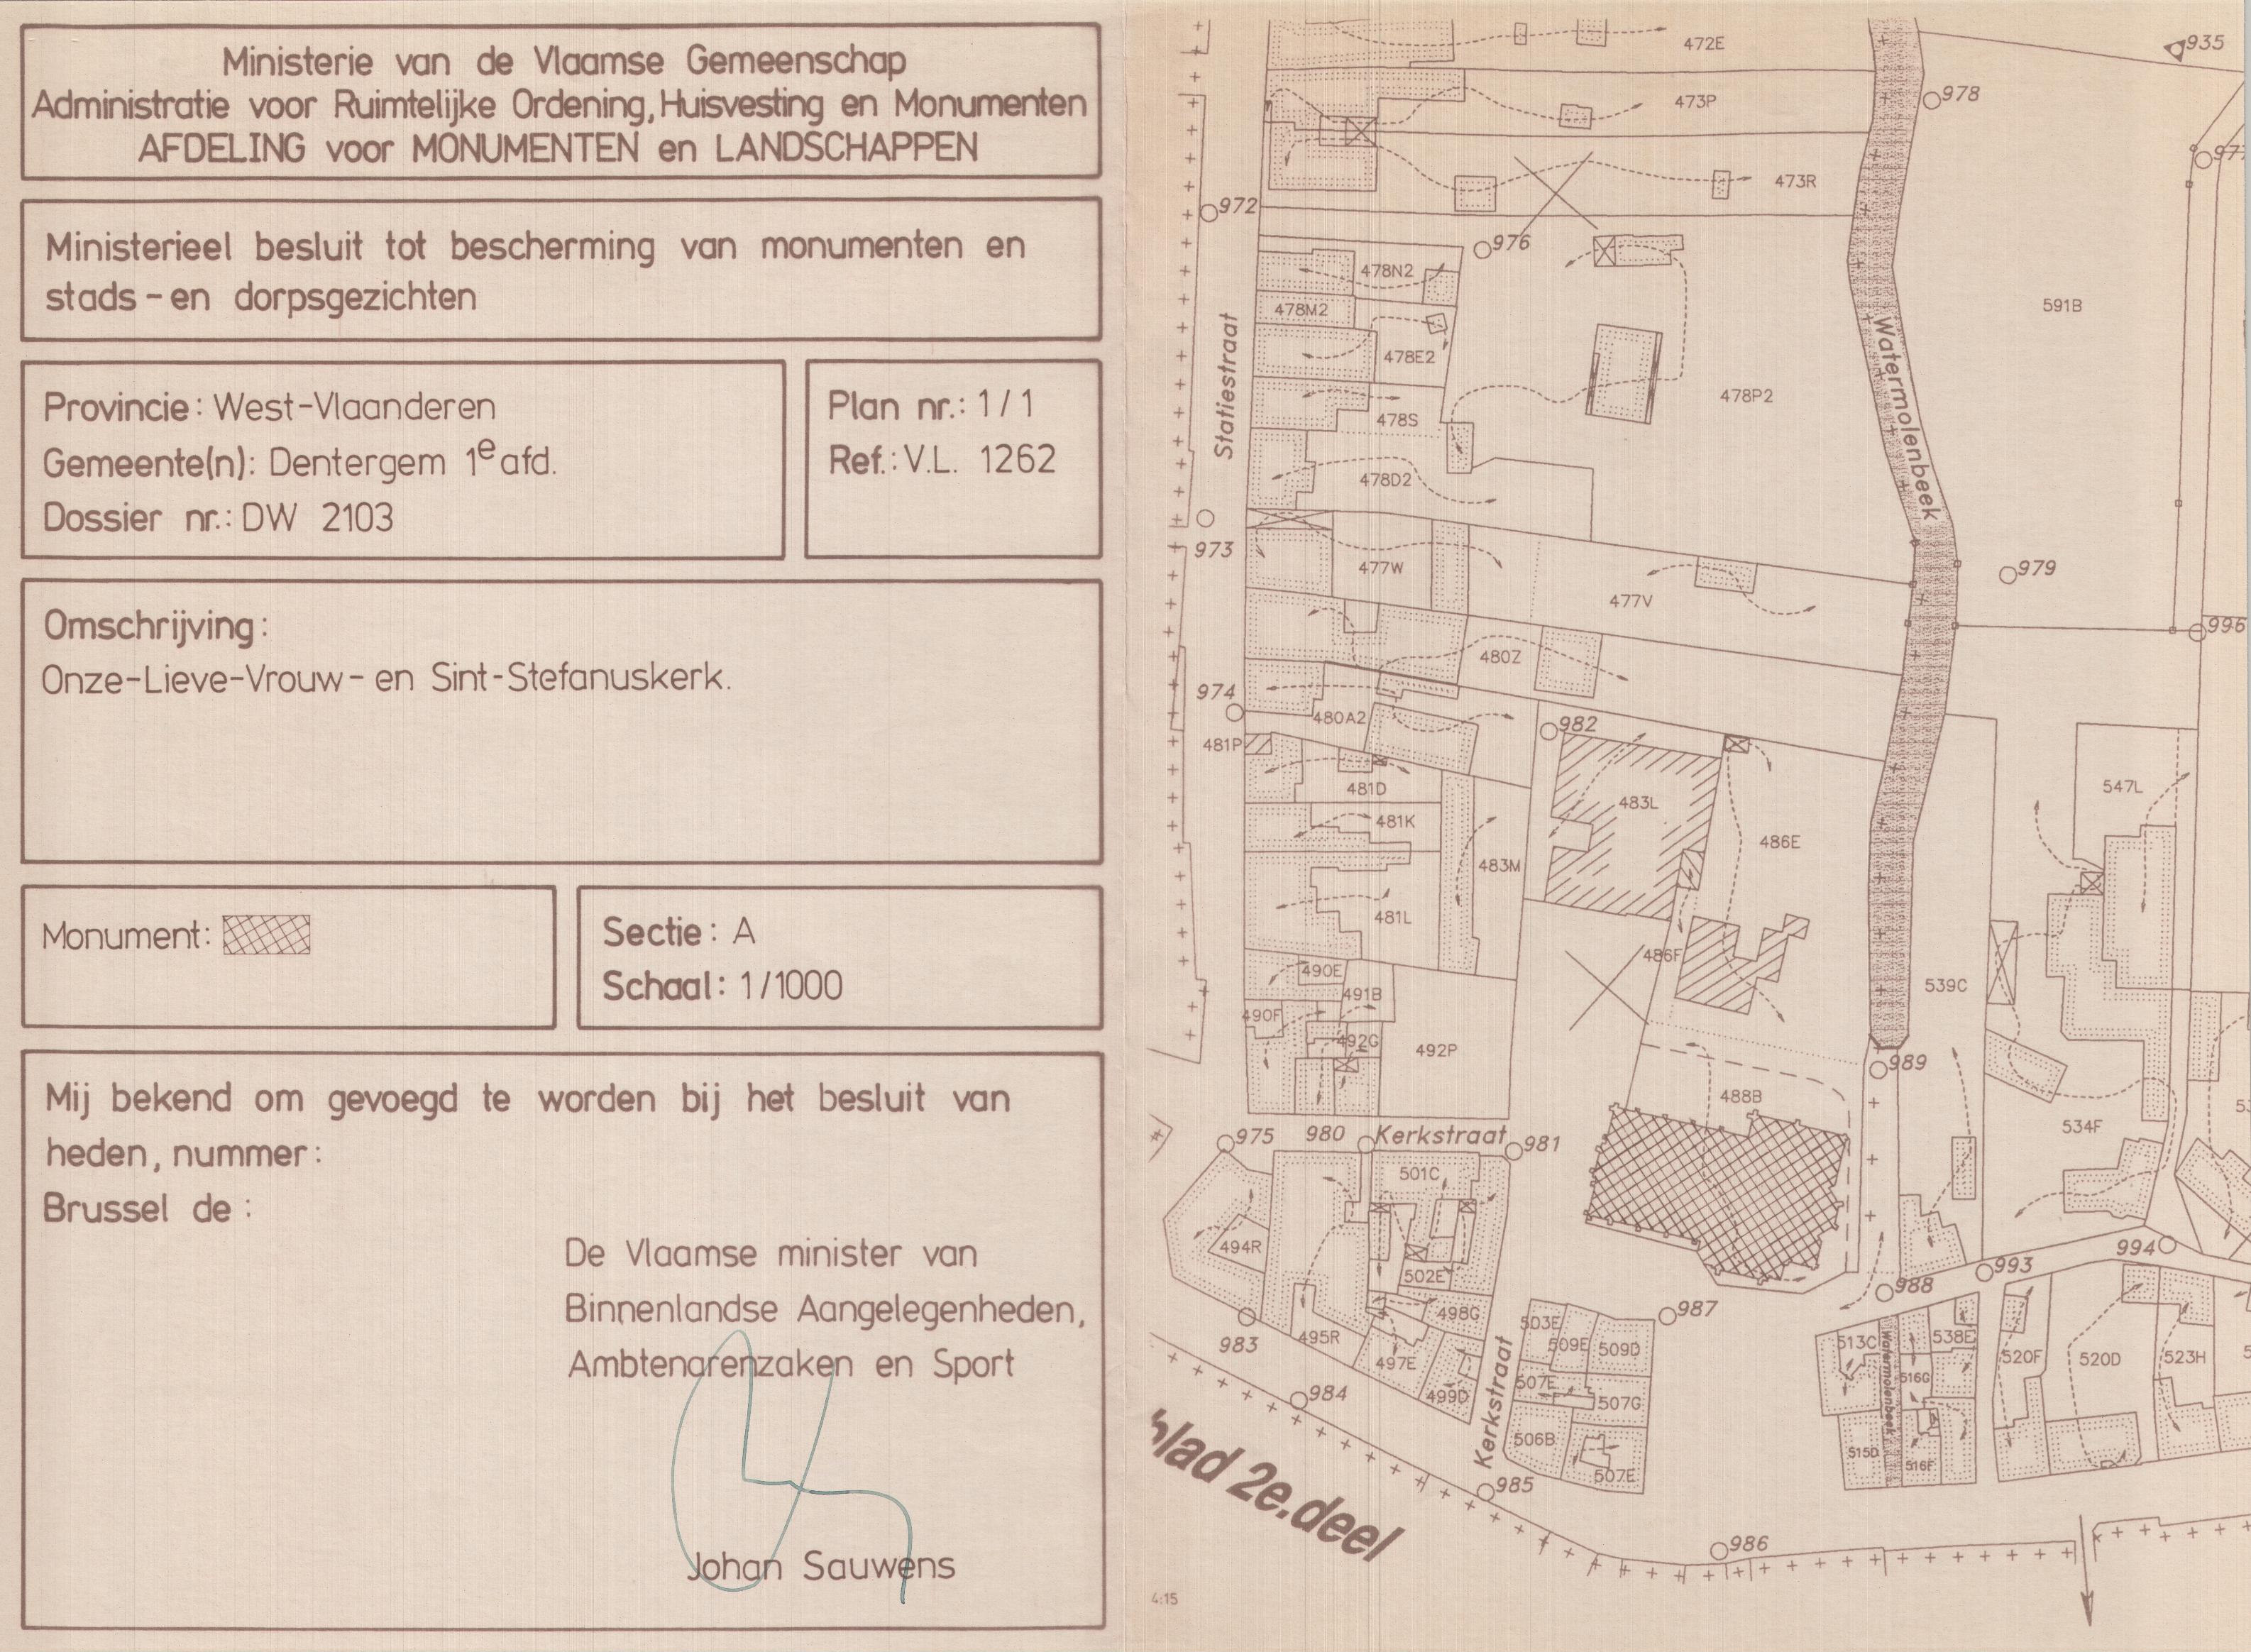 Ministerie van de Vlaamse Gemeenschap
Administratie voor Ruimtelijke Ordening, Huisvesting en Monumenten
AFDELING voor MONUMENTEN en LANDSCHAPPEN
Ministerieel besluit tot bescherming van monumenten en
stads-en dorpsgezichten
Provincie: West-Vlaanderen
Gemeente(n): Dentergem 1e afd.
Dossier nr.: DW 2103
Plan nr.: 1/1
Ref.: V.L. 1262
Omschrijving:
Onze-Lieve-Vrouw- en Sint-Stefanuskerk.
Monument:
Sectie: A
Schaal: 1/1000
Mij bekend om gevoegd te worden bij het besluit van
heden, nummer:
Brussel de:
De Vlaamse minister van
Binnenlandse Aangelegenheden,
Ambtenarenzaken en Sport
Johan Sauwens
472E
935
978
473P
977
473R
972
976
478N2
478M2
591B
Statiestraat
Watermolenbeek
478E2
478P2
478S
478D2
973
477W
979
477V
996
480Z
974
480A2
982
481P
481D
547L
483L
481K
486E
483M
481L
486F
490E
539C
491B
490F
492G
492P
989
488B
534F
975
980
Kerkstraat
981
501C
494R
994
502E
993
988
498G
987
983
495R
503E
509E
509D
513C
Watermolenbeek
538E
520F
520D
523H
497E
507F
516G
499D
507G
984
Kerkstraat
506B
515D
516F
507E
985
blad 2e.deel
986
4:15